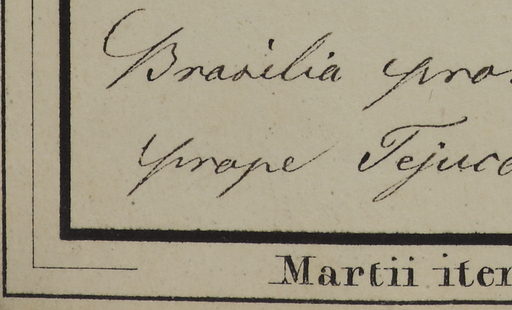 Brasilia pro
prope Tejuc
Martii iter